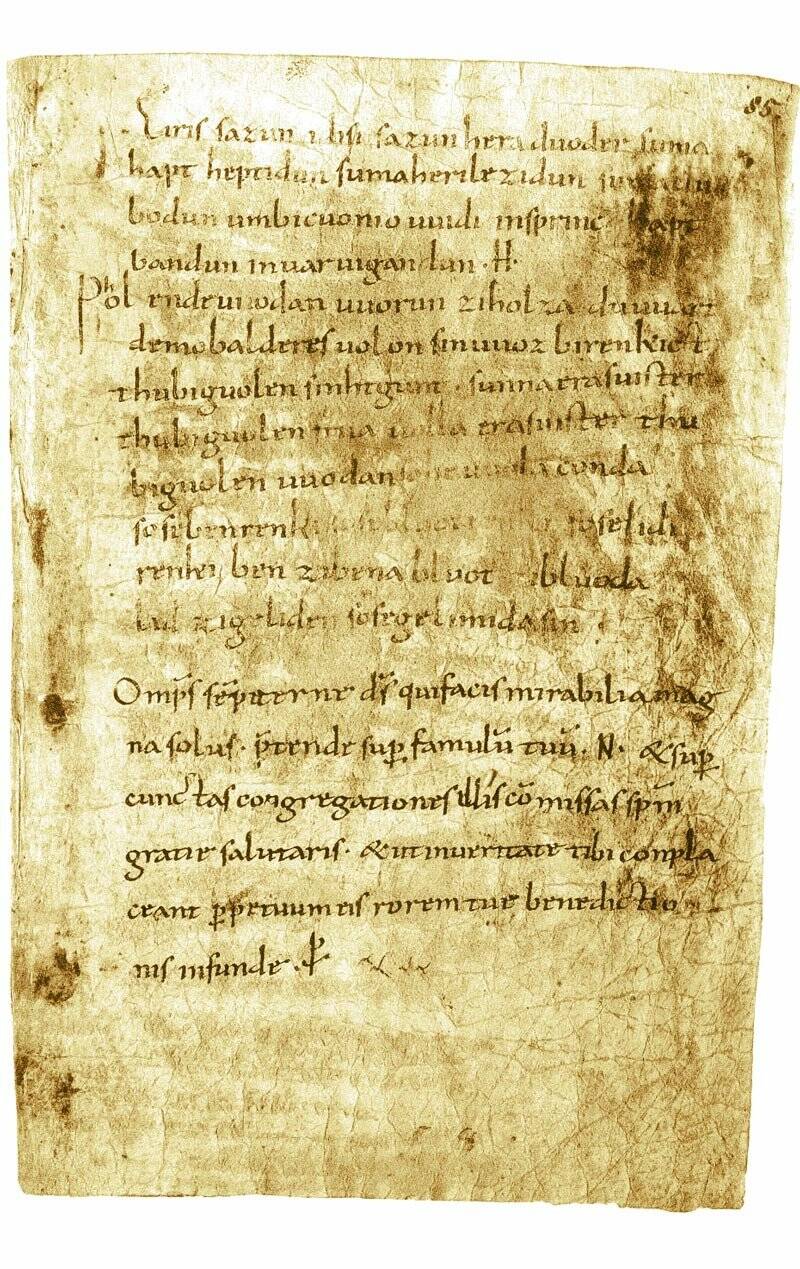 85
Eiris sazun idisi sazun hera duoder suma
hapt heptidun suma heri lezidun suma clu
bodun umbicuonio uuidi insprinc hapt
bandun inuar uigandun · H ·
Phol ende uuodan uuorun zi holza du uuart
demo balderes uolon sin uuoz birenkict
thu biguolen sinhtgunt · sunna era suister
thu biguolen friia uolla era suister thu
biguolen uuodan so he uuola conda
sose benrenki sose bluotrenki sose lidi
renki ben zi bena bluot zi bluoda
lid zi geliden sose gelimida sin
Omps sempiterne ds qui facis mirabilia mag
na solus · ptende sup famulu tuu · N · & sup
cunctas congregationes illis comissas spm
gratie salutaris · & ut in ueritate tibi conpla
ceant ppetuum eis rorem tue benedictio
nis infunde · P